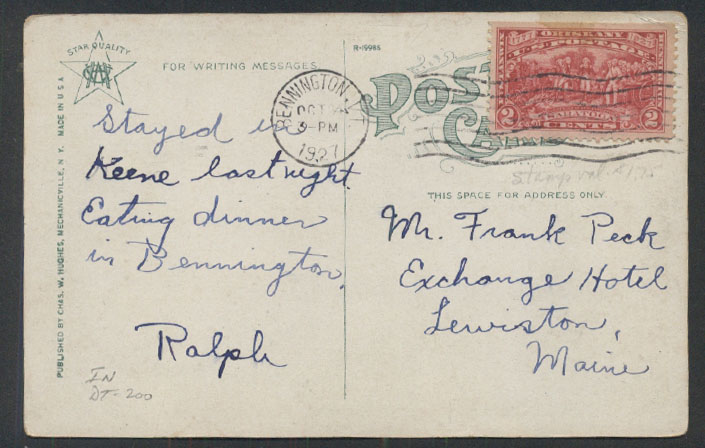 STAR QUALITY
FOR WRITING MESSAGES.
R-19985
POST
CARD
ORISKANY
1777 1927
U.S. POSTAGE
SARATOGA
2 CENTS 2
BENNINGTON, VT
OCT
3-PM
1927
Stamps val. $1.75
THIS SPACE FOR ADDRESS ONLY.
Stayed in
Keene last night
Eating dinner
in Bennington.
Ralph
Mr. Frank Peck
Exchange Hotel
Lewiston,
Maine
IN
DT-200
PUBLISHED BY CHAS. W. HUGHES, MECHANICVILLE, N. Y. MADE IN U.S.A.